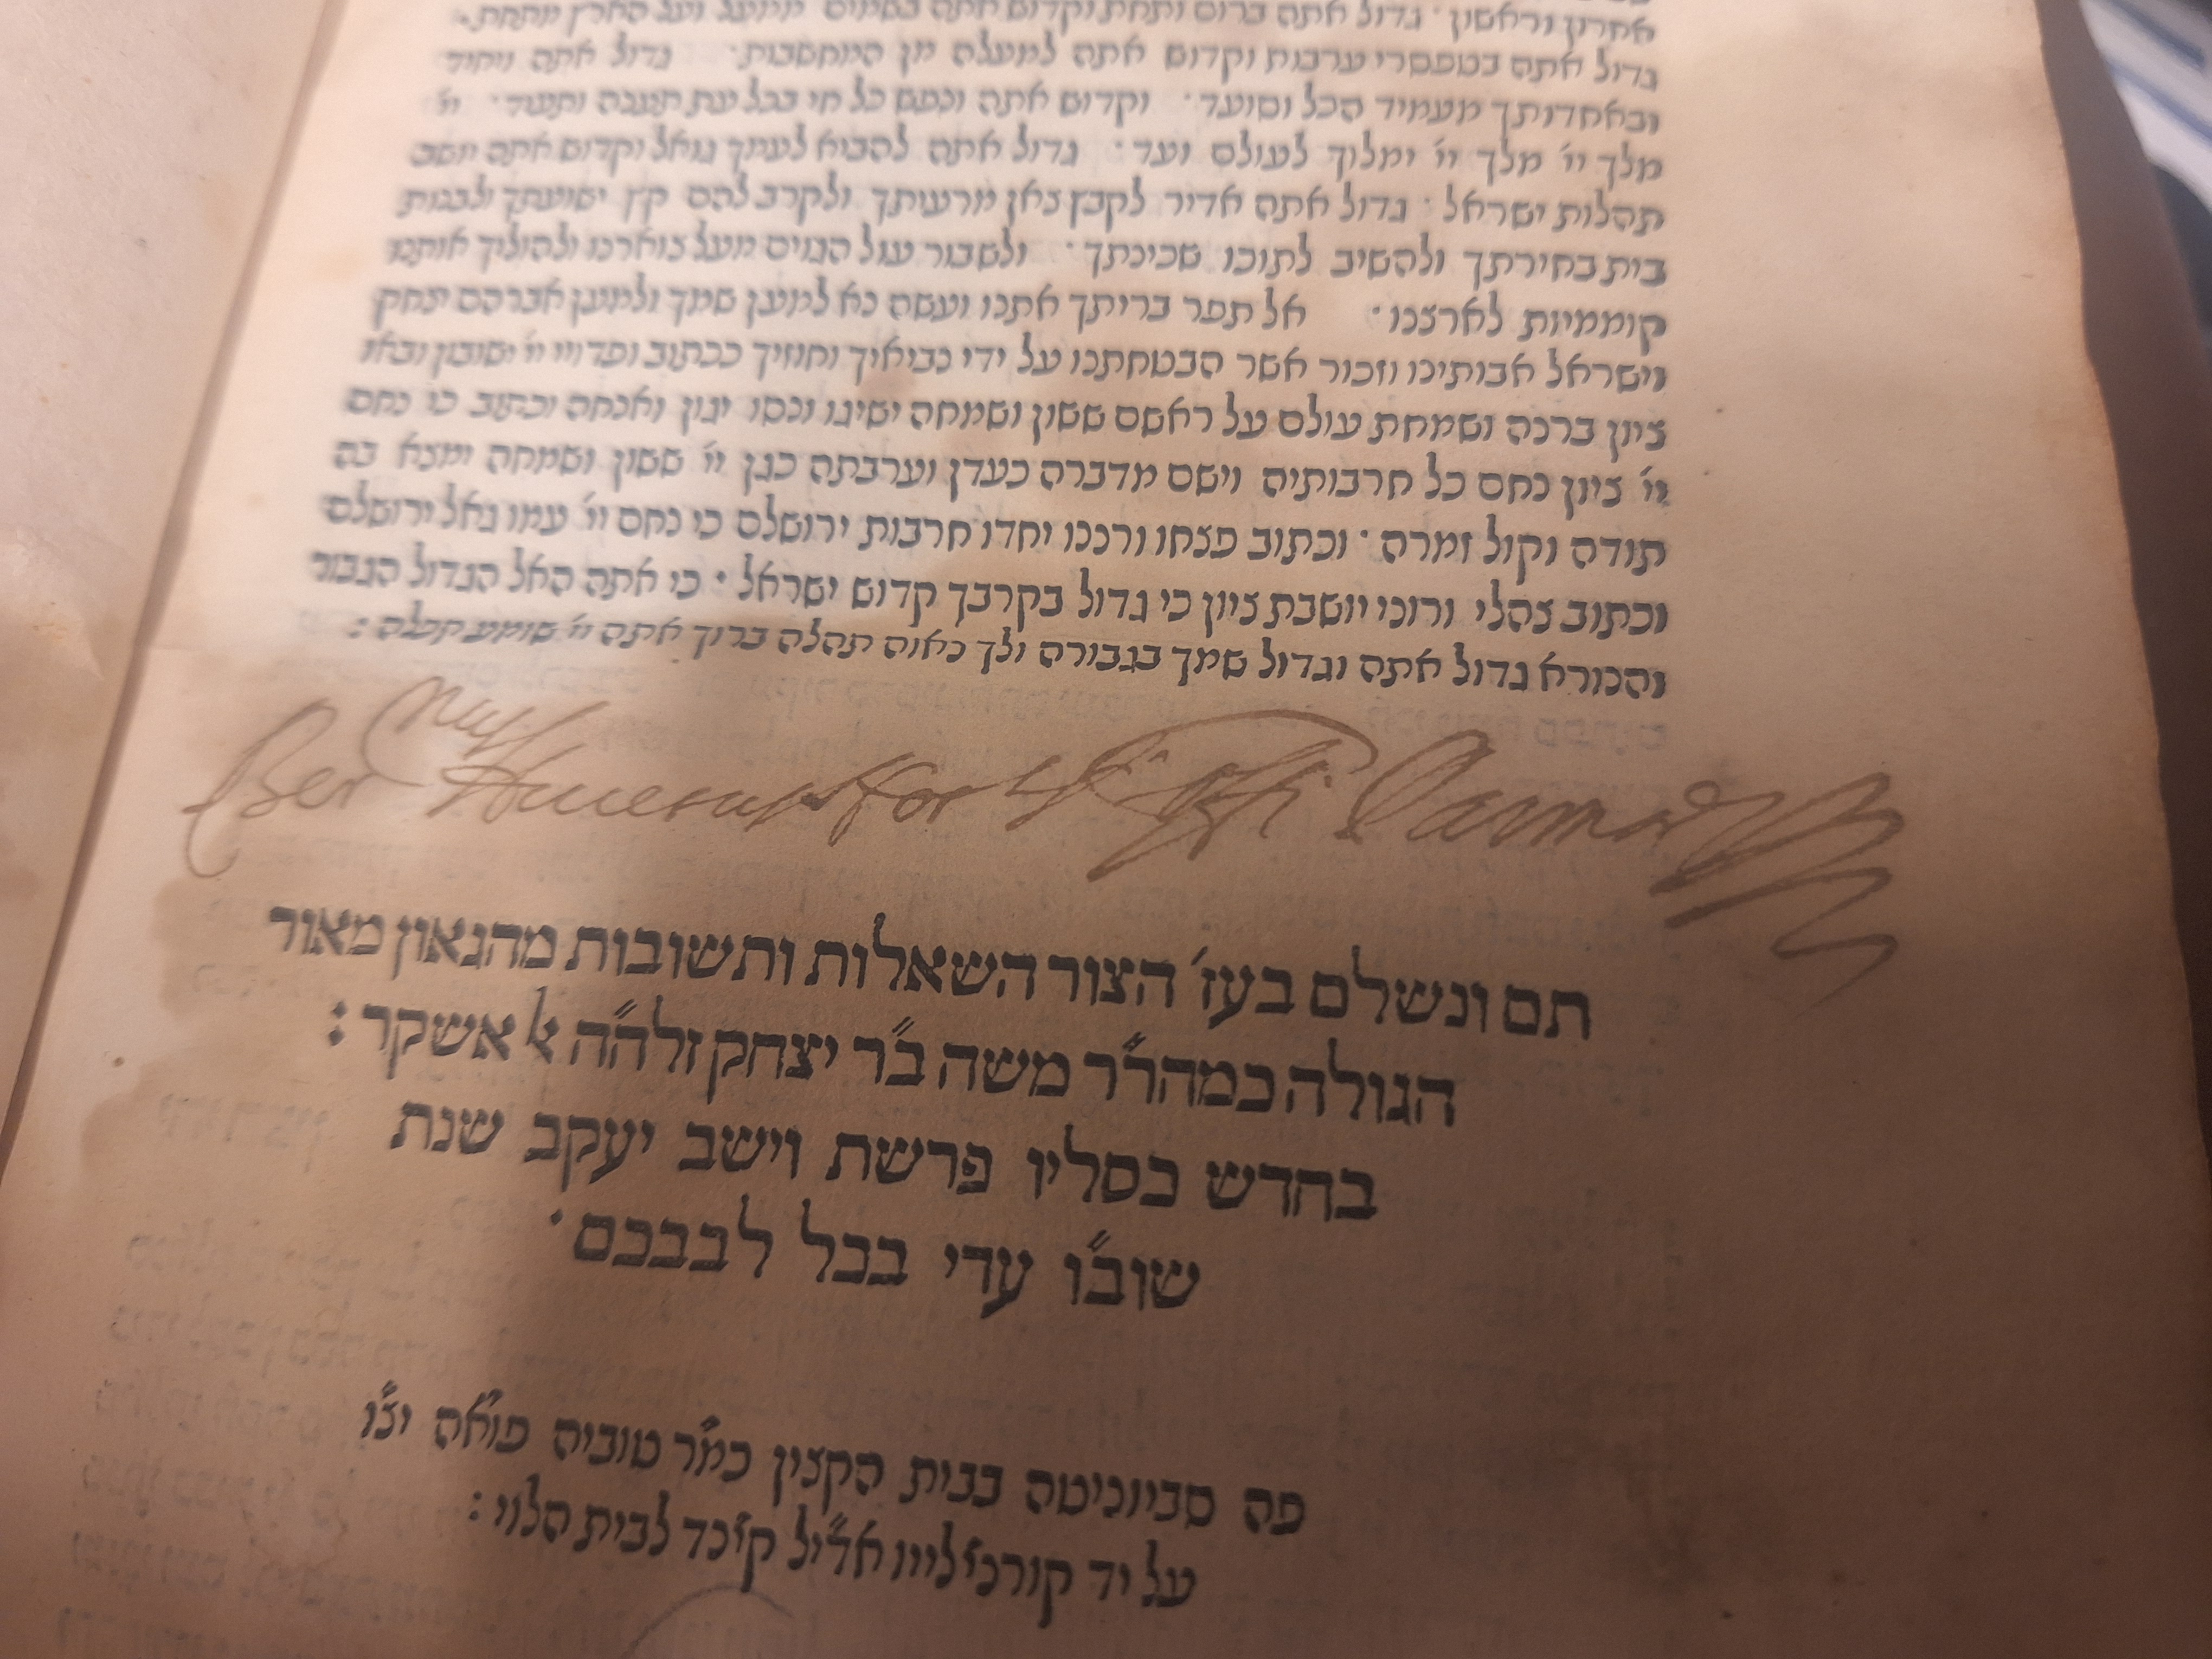 אחרון וראשון · גדול אתה ברום ותחת וקדוש אתה בשמים ממעל ועל הארץ מתחת ·
גדול אתה בטפסרי ערבות וקדוש אתה למעלה מן המחשבות · גדול אתה ויחיד
ובאחדותך מעמיד הכל וסועד · וקדוש אתה וכפש כל חי בכל עת תצבה ותעוד · יי'
מלך יי' מלך יי' ימלוך לעולם ועד · גדול אתה להביא לעמך גואל וקדוש אתה יושב
תהלות ישראל · גדול אתה אדיר לקבץ צאן מרעיתך ולקרב להם קץ ישועתך ולבנות
בית בחירתך ולהשיב לתוכו שכינתך · ולשבור עול הגוים מעל צוארנו ולהוליך אותנו
קוממיות לארצנו · אל תפר בריתך אתנו ועשה נא למען שמך ולמען אברהם יצחק
וישראל אבותינו וזכור אשר הבטחתנו על ידי נביאיך וחוזיך ככתוב ופדויי יי' ישובון ובאו
ציון ברנה ושמחת עולם על ראשם ששון ושמחה ישיגו ונסו יגון ואנחה וכתוב כי נחם
יי' ציון נחם כל חרבותיה וישם מדברה כעדן וערבתה כגן יי' ששון ושמחה ימצא בה
תודה וקול זמרה · וכתוב פצחו ורננו יחדו חרבות ירושלם כי נחם יי' עמו גאל ירושלם
וכתוב צהלי ורוני יושבת ציון כי גדול בקרבך קדוש ישראל · כי אתה האל הגדול הגבור
והנורא גדול אתה וגדול שמך בגבורה ולך נאוה תהלה ברוך אתה יי' שומע תפלה :
תם ונשלם בעז' הצור השאלות ותשובות מהגאון מאור
הגולה כמהר"ר משה ב"ר יצחק זלה"ה ן' אשקר :
בחדש כסליו פרשת וישב יעקב שנת
שוב"ו עדי בכל לבבכם ·
פה סביוניטה בבית הקצין כמ"ר טוביה פוא"ה יצ"ו
על יד קורניליו אדי"ל קינד לבית הלוי :